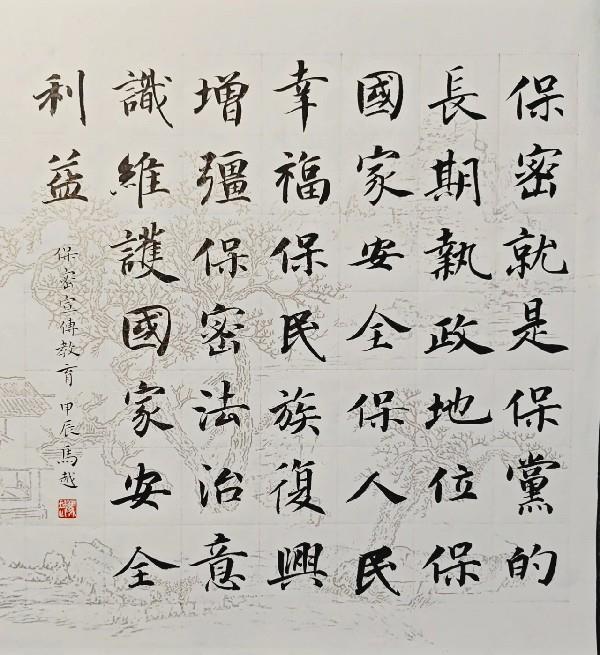 保密就是保黨的
長期執政地位保
國家安全保人民
幸福保民族復興
增彊保密法治意
識維護國家安全
利益
保密宣傳教育 甲辰馬越